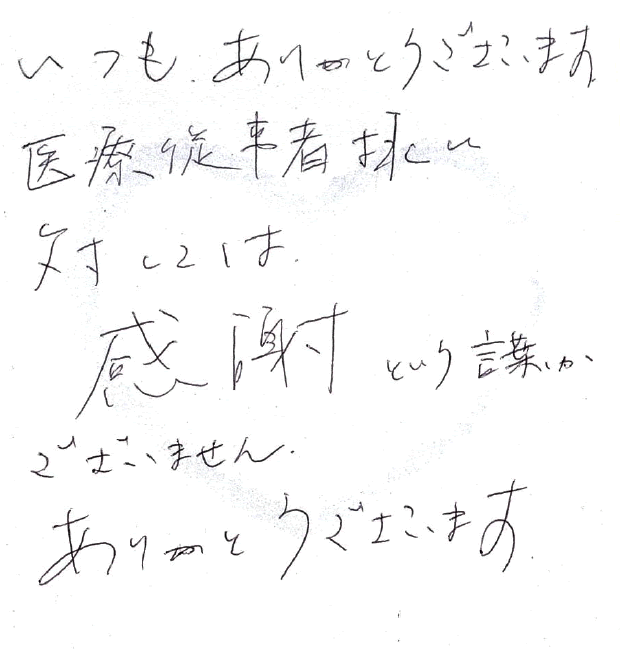 いつも、ありがとうございます
医療従事者様に
対しては、
感謝という言葉しか
ございません。
ありがとうございます。